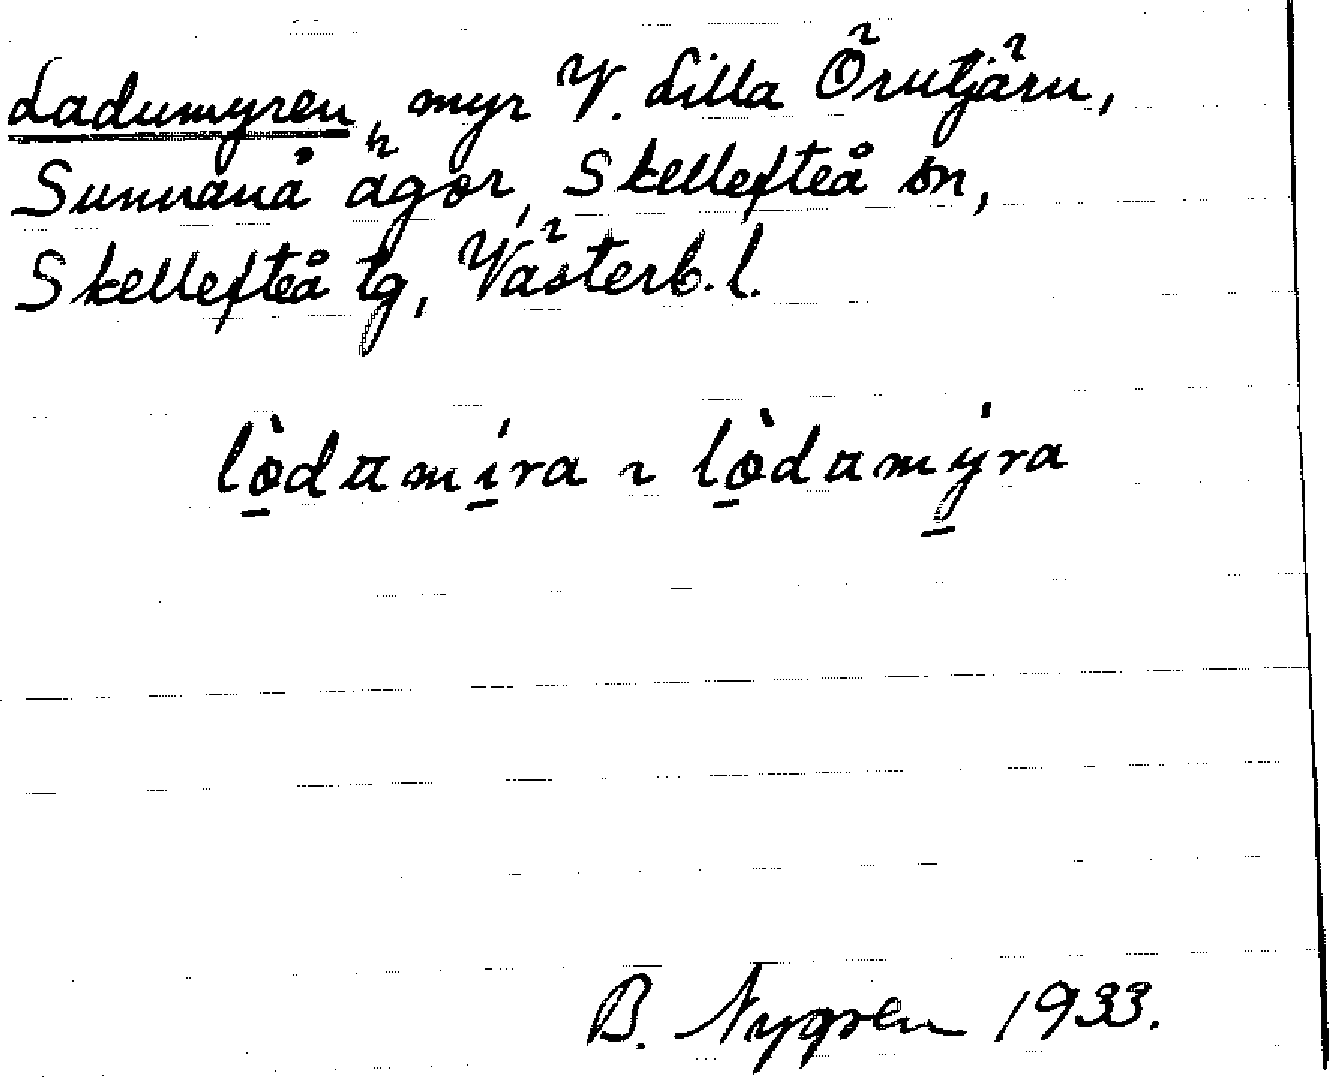 Ladumyren, myr V. Lilla Örutjärn,
Sunnanå ägor, Skellefteå sn,
Skellefteå tg, Västerb. l.
lò̠dɑmí̠ra ~ lò̠dɑmý̠ra
B. Nygren 1933.